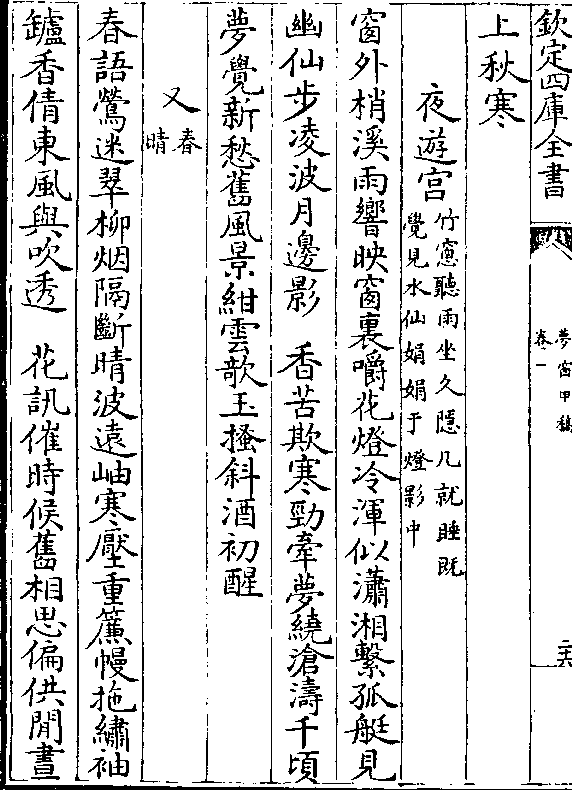 欽定四庫全書
夢窗甲稿
卷一
二六
上秋寒
夜遊宫
竹窻聽雨坐久隱几就睡既
覺見水仙娟娟于燈影中
窗外梢溪雨響映窗裏嚼花燈冷渾似瀟湘繫孤艇見
幽仙步凌波月邊影　香苦欺寒勁牽夢繞滄濤千頃
夢覺新愁舊風景紺雲欹玉搔斜酒初醒
又
春
晴
春語鶯迷翠柳烟隔斷晴波遠岫寒壓重簾幔拖繡袖
鑪香倩東風與吹透　花訊催時候舊相思偏供閒晝